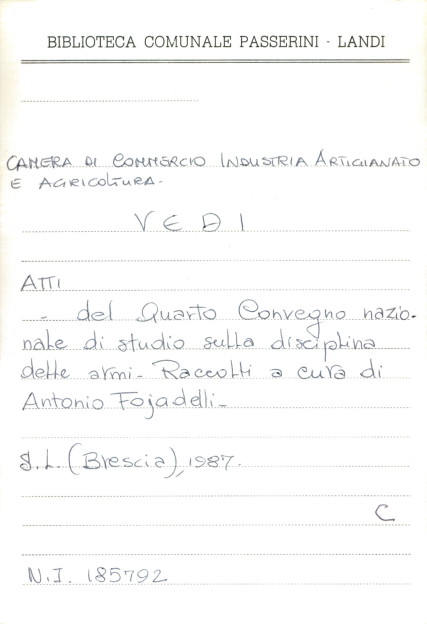 BIBLIOTECA COMUNALE PASSERINI - LANDI
CAMERA DI COMMERCIO INDUSTRIA ARTIGIANATO
E AGRICOLTURA.
VEDI
ATTI
- del Quarto Convegno nazio-
nale di studio sulla disciplina
delle armi - Raccolti a cura di
Antonio Fojadelli -
S.L. (Brescia), 1987.
C
N.I. 185792